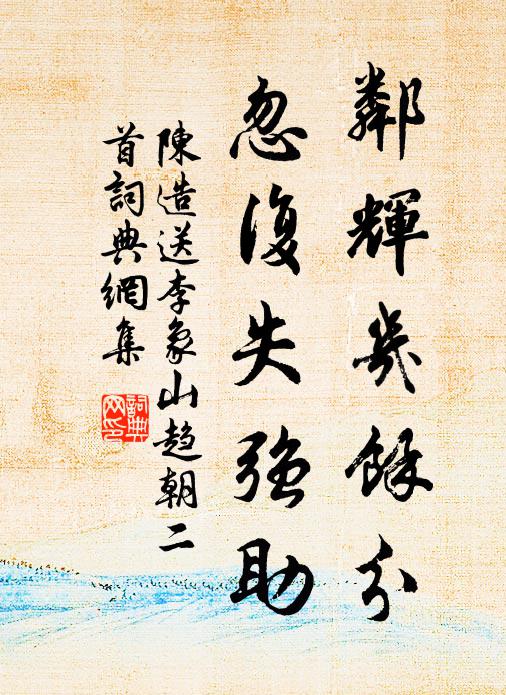 鄰輝幾餘分
忽復失強助
陳造送李象山趋朝二
首詞典網集
詞典